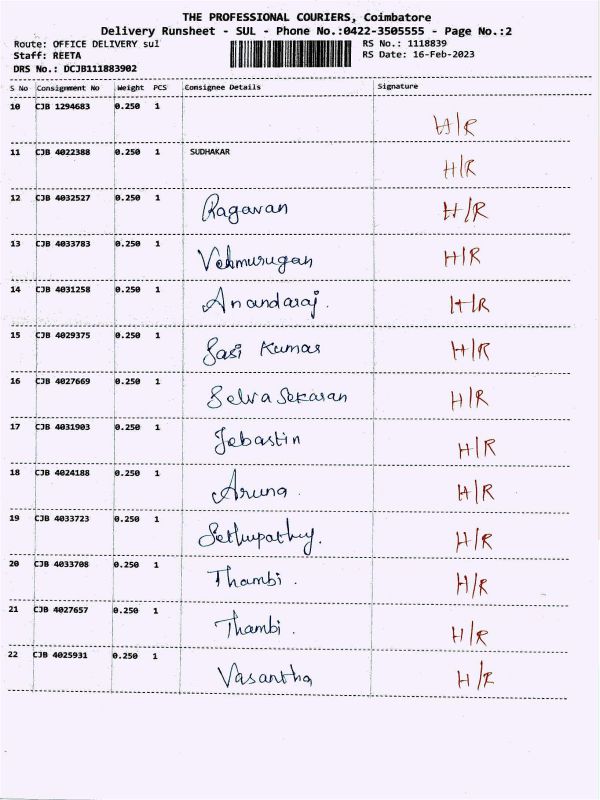 THE PROFESSIONAL COURIERS, Coimbatore
Delivery Runsheet - SUL - Phone No.:0422-3505555 - Page No.:2
Route: OFFICE DELIVERY sul RS No.: 1118839
Staff: REETA RS Date: 16-Feb-2023
DRS No.: DCJB111883902
S No Consignment No Weight PCS Consignee Details Signature
10 CJB 1294683 0.250 1 H/R
11 CJB 4022388 0.250 1 SUDHAKAR H/R
12 CJB 4032527 0.250 1 Ragavan H/R
13 CJB 4033783 0.250 1 Velmurugan H/R
14 CJB 4031258 0.250 1 Anandaraj. H/R
15 CJB 4029375 0.250 1 Sasi Kumar H/R
16 CJB 4027669 0.250 1 Selva Sekaran H/R
17 CJB 4031903 0.250 1 Jebastin H/R
18 CJB 4024188 0.250 1 Aruna. H/R
19 CJB 4033723 0.250 1 Sethupathy. H/R
20 CJB 4033708 0.250 1 Thambi. H/R
21 CJB 4027657 0.250 1 Thambi. H/R
22 CJB 4025931 0.250 1 Vasantha H/R